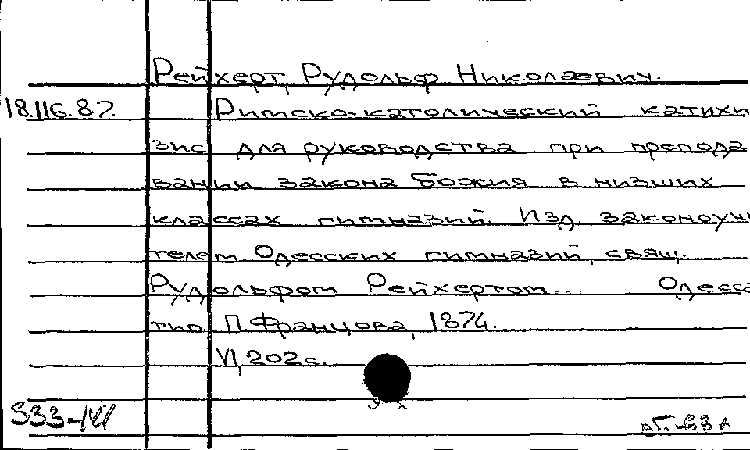 Рейхерт, Рудольф Николаевич.
18.116.87. Римско-католический катихи
зис для руководства при препода
вании закона Божия в низших
классах гимназий. Изд. законоучи
телем Одесских гимназий, свящ.
Рудольфом Рейхертом... Одесса
тип. П. Францова, 1874.
VI, 202 с.